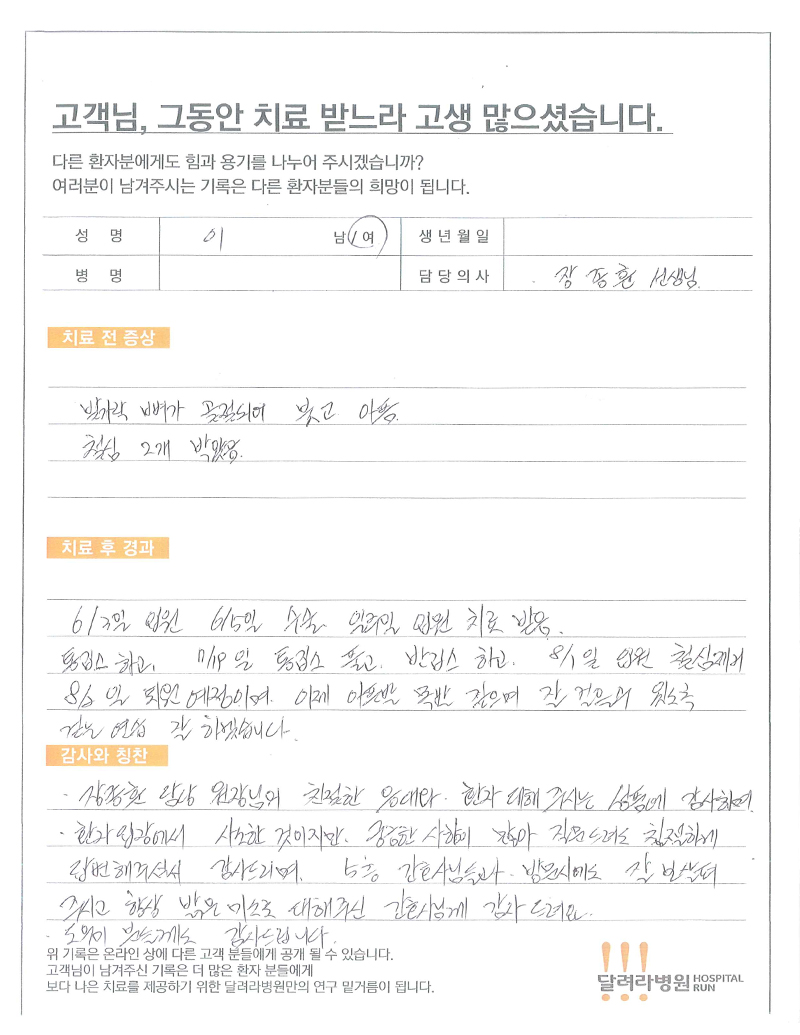 고객님, 그동안 치료 받느라 고생 많으셨습니다.
다른 환자분에게도 힘과 용기를 나누어 주시겠습니까?
여러분이 남겨주시는 기록은 다른 환자분들의 희망이 됩니다.
성 명 이 남/여 생년월일
병 명 담당의사 장종환 선생님
치료 전 증상
발가락 뼈가 골절되어 붓고 아픔.
철심 2개 박았음.
치료 후 경과
6/3일 입원 6/5일 수술 일주일 입원 치료 받음.
통깁스 하고, 7/19일 통깁스 풀고, 반깁스 하고, 8/1일 입원 철심제거
퇴원 예정이며, 이제 아픈발 딛으며 잘 걸을수 있도록
걷는 연습 잘 하겠습니다.
감사와 칭찬
· 장종환 담당 원장님의 친절한 응대와 환자 대해 주시는 성품에 감사하며,
· 환자 입장에서 사소한 것이지만, 궁금한 사항이 많아 친절하게
답변해주셔서 감사드리며, 5층 간호사님들과 잘 보살펴
주시고 항상 밝은 미소로 대해주신 간호사님께 감사 드려요.
· 도와주 분들께도 감사드립니다.
위 기록은 온라인 상에 다른 고객 분들에게 공개 될 수 있습니다.
고객님이 남겨주신 기록은 더 많은 환자 분들에게
보다 나은 치료를 제공하기 위한 달려라병원만의 연구 밑거름이 됩니다.
!!!
달려라병원 HOSPITAL RUN